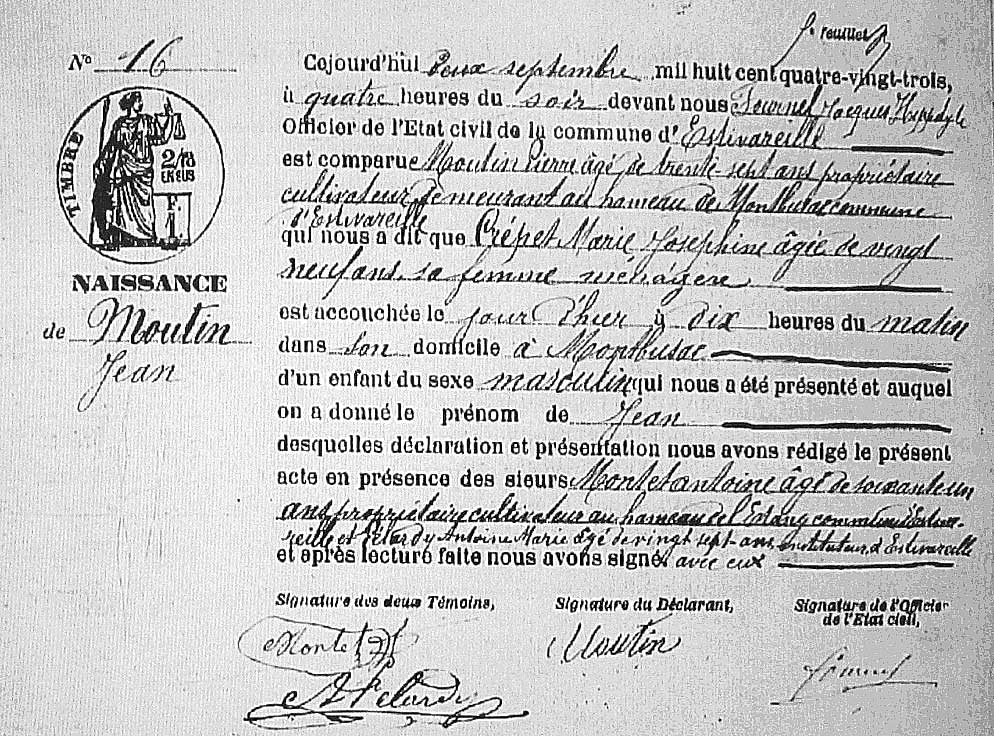 fº feuillet
Nº 16
TIMBRE
2/10
EN SUS
F.
1.
NAISSANCE
de Moutin
Jean
Cejourd'hui deux septembre mil huit cent quatre-vingt-trois,
à quatre heures du soir devant nous Fournel Jacques Hippolyte
Officier de l'Etat civil de la commune d'Estivareille
est comparu Moutin Pierre âgé de trente-sept ans propriétaire
cultivateur demeurant au hameau de Montbusac commune
d'Estivareille
qui nous a dit que Crépet Marie Josephine âgée de vingt
neuf ans sa femme ménagère
est accouchée le jour d'hier à dix heures du matin
dans son domicile à Montbusac
d'un enfant du sexe masculin qui nous a été présenté et auquel
on a donné le prénom de Jean
desquelles déclaration et présentation nous avons rédigé le présent
acte en présence des sieurs Montet antoine âgé de soixante un
ans propriétaire cultivateur au hameau de l'Estang commune d'Estiva-
reille et Pélardy Antoine Marie âgé de vingt sept ans instituteur d'Estivareille
et après lecture faite nous avons signé avec eux
Signature des deux Témoins,
Signature du Déclarant,
Signature de l'Officier
de l'Etat civil,
Montet
Moutin
Fournel
A Pelardy